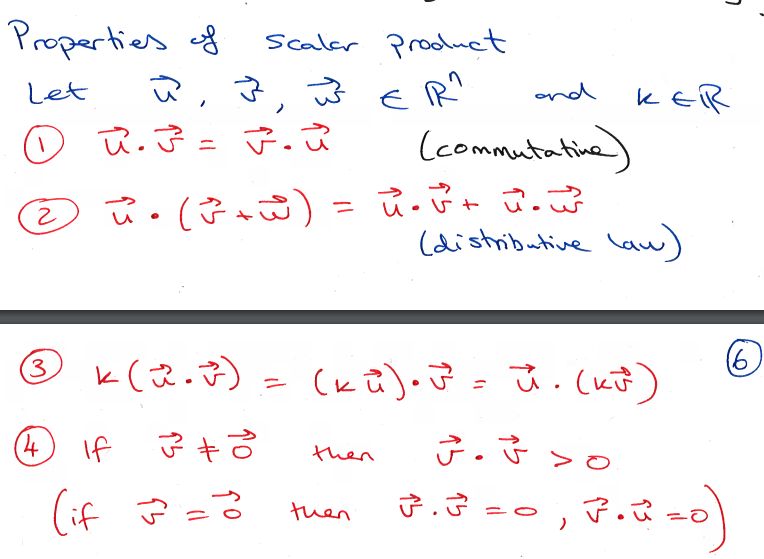 Properties of scalar product
Let u⃗, v⃗, w⃗ ∈ ℝⁿ and k ∈ ℝ
① u⃗ · v⃗ = v⃗ · u⃗ (commutative)
② u⃗ · (v⃗ + w⃗) = u⃗ · v⃗ + u⃗ · w⃗
(distributive law)
⑥
③ k(u⃗ · v⃗) = (k u⃗) · v⃗ = u⃗ · (k v⃗)
④ If v⃗ ≠ 0⃗ then v⃗ · v⃗ > 0
(if v⃗ = 0⃗ then v⃗ · v⃗ = 0, v⃗ · u⃗ = 0)